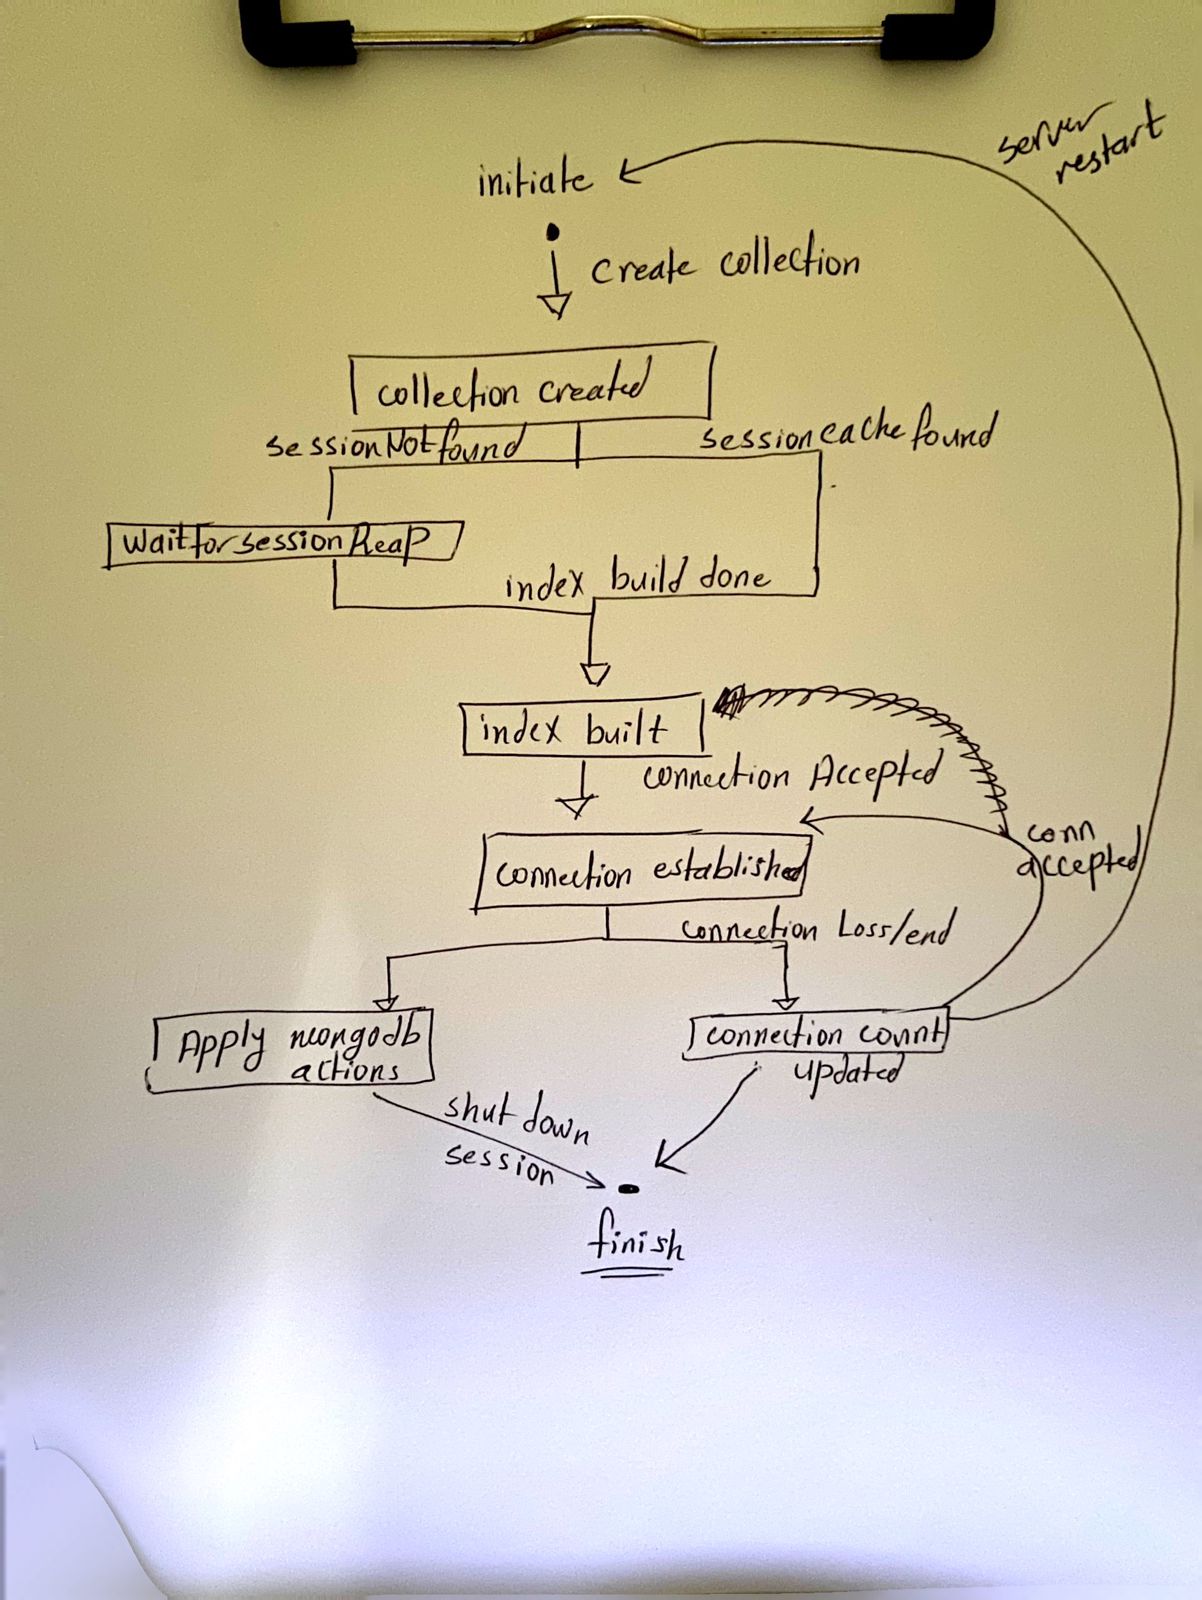 server
restart
initiate
create collection
collection created
sessionNotfound
sessioncachefound
waitforsessionReap
index build done
index built
connection Accepted
conn
accepted
connection established
connection Loss/end
Apply mongodb
actions
connection count
updated
shut down
session
finish